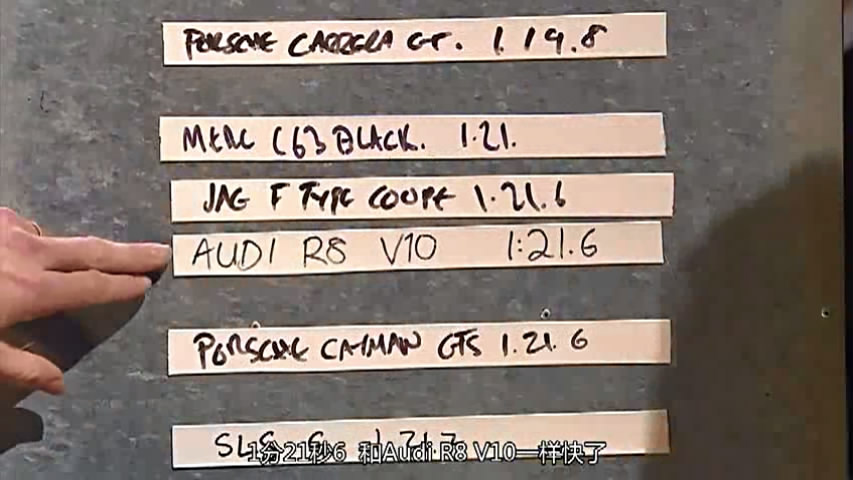 PORSCHE CARRERA GT. 1.19.8
MERC C63 BLACK. 1.21.
JAG F TYPE COUPE 1.21.6
AUDI R8 V10 1:21.6
PORSCHE CAYMAN GTS 1.21.6
SLS
1分21秒6 和Audi R8 V10一样快了